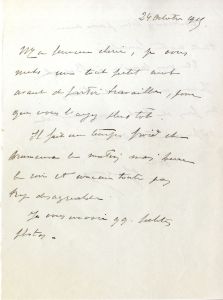 24 Octobre 19
Ma chérie, je vous
mets un tout petit mot
avant de partir travailler, pour
que vous l'ayez plus tôt.
Il fait un temps froid et
brumeux le matin, mais
le soir et pas
trop désagréable.
Je vous envoie qq. petites
photos.